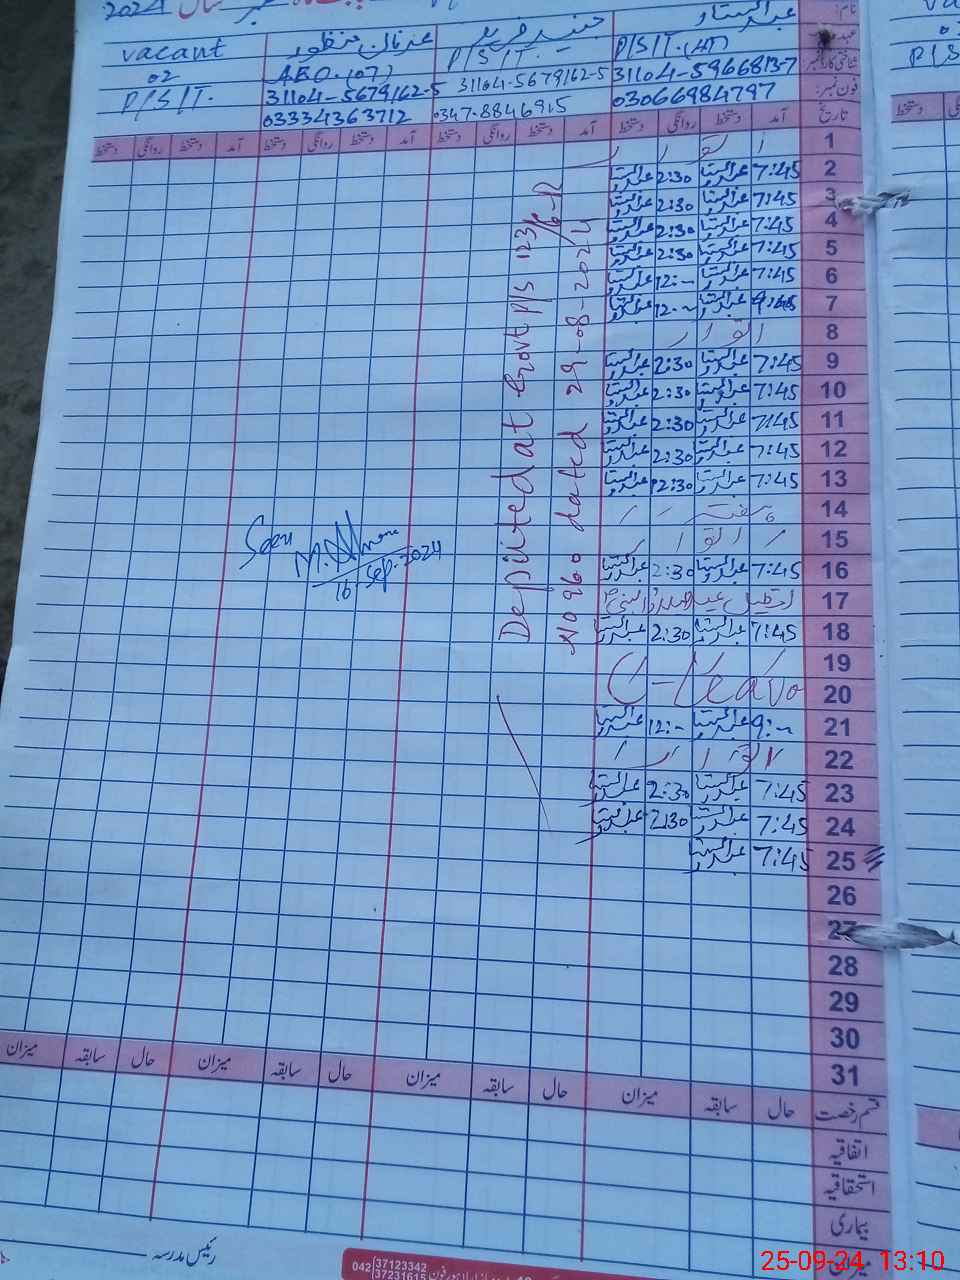 2024
نام:
عبدالستار
vacant
عدنان منظور
P/S/T.(HT)
P/S/T.
A.E.O.(07)
02
شناختی کارڈ نمبر
31104-5966813-7
31104-5679162-5
31104-5679162-5
P/S/T.
فون نمبر:
03066984797
0347-8846915
03334363712
تاریخ
آمد دستخط روانگی دستخط آمد دستخط روانگی دستخط آمد دستخط روانگی دستخط آمد دستخط روانگی دستخط
1 اتوار
2 7:45 عبدالستار 2:30 عبدالستار
3 7:45 عبدالستار 2:30 عبدالستار
4 7:45 عبدالستار 2:30 عبدالستار
5 7:45 عبدالستار 2:30 عبدالستار
6 7:45 عبدالستار 12:- عبدالستار
7 عبدالستار 12:- عبدالستار
8 اتوار
9 7:45 عبدالستار 2:30 عبدالستار
10 7:45 عبدالستار 2:30 عبدالستار
11 7:45 عبدالستار 2:30 عبدالستار
12 7:45 عبدالستار 2:30 عبدالستار
13 7:45 عبدالستار 12:30 عبدالستار
14 ہفتہ
15 اتوار
16 7:45 عبدالستار 2:30 عبدالستار
17 تعطیل عید میلاد النبی
18 7:45 عبدالستار 2:30 عبدالستار
19
20 C-Leave
21 9:- عبدالستار 12:- عبدالستار
22 اتوار
23 7:45 عبدالستار 2:30 عبدالستار
24 7:45 عبدالستار 2:30 عبدالستار
25 7:45 عبدالستار
26
27
28
29
30
31
Deputed at Govt P/S 123/6-R
No 960 dated 29-08-2024
Seen
16 Sep. 2024
قسم رخصت حال سابقہ میزان حال سابقہ میزان حال سابقہ میزان حال سابقہ میزان
اتفاقیہ
استحقاقیہ
بیماری
رئیس مدرسہ
042 37123342
37231615
25-09-24 13:10